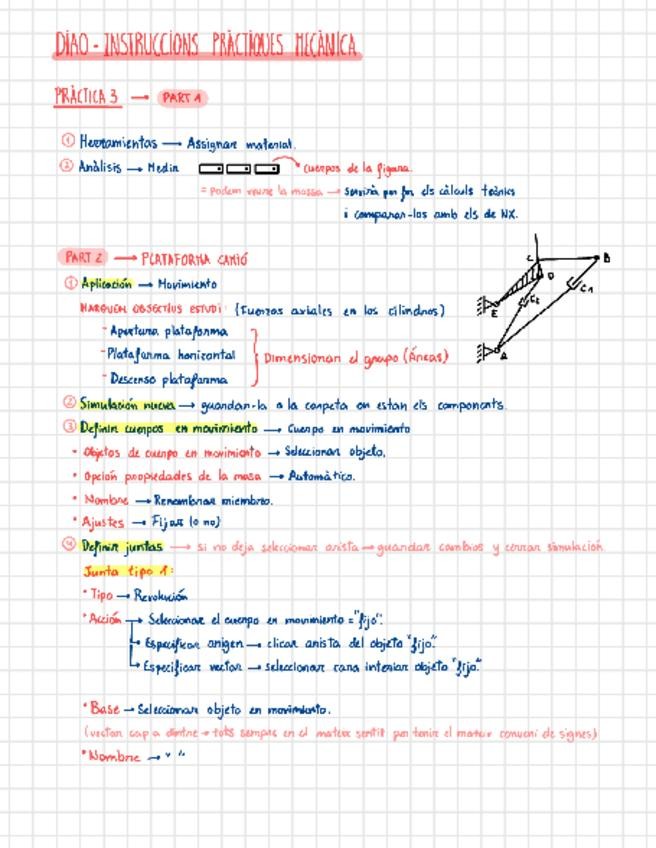 DIAO - INSTRUCCIONS PRÀCTIQUES MECÀNICA
PRÀCTICA 3 → PART 1
① Herramientas → Asignar material.
② Anàlisis → Medir → Cuerpos de la figura.
= podem veure la massa → servirà per fer els càlculs teòrics
i comparar-los amb els de NX.
PART 2 → PLATAFORMA CAMIÓ
① Aplicación → Movimiento
MARQUEM OBJECTIUS ESTUDI: (Fuerzas axiales en los cilindros)
- Apertura plataforma
- Plataforma horizontal
- Descenso plataforma
Dimensionar el grupo (Áreas)
C
B
D
C2
C1
E
A
② Simulación nueva → guardar-la a la carpeta on estan els components.
③ Definir cuerpos en movimiento → Cuerpo en movimiento
• Objetos de cuerpo en movimiento → Seleccionar objeto.
• Opción propiedades de la masa → Automático.
• Nombre → Renombrar miembro.
• Ajustes → Fijar (o no)
④ Definir juntas → si no deja seleccionar arista → guardar cambios y cerrar simulación
Junta tipo 1:
• Tipo → Revolución
• Acción → Seleccionar el cuerpo en movimiento = "fijo".
→ Especificar origen → clicar arista del objeto "fijo."
→ Especificar vector → seleccionar cara interior objeto "fijo."
• Base → Seleccionar objeto en movimiento.
(vector cap a dintre → tots sempre en el mateix sentit per tenir el mateix conveni de signes)
• Nombre → " "